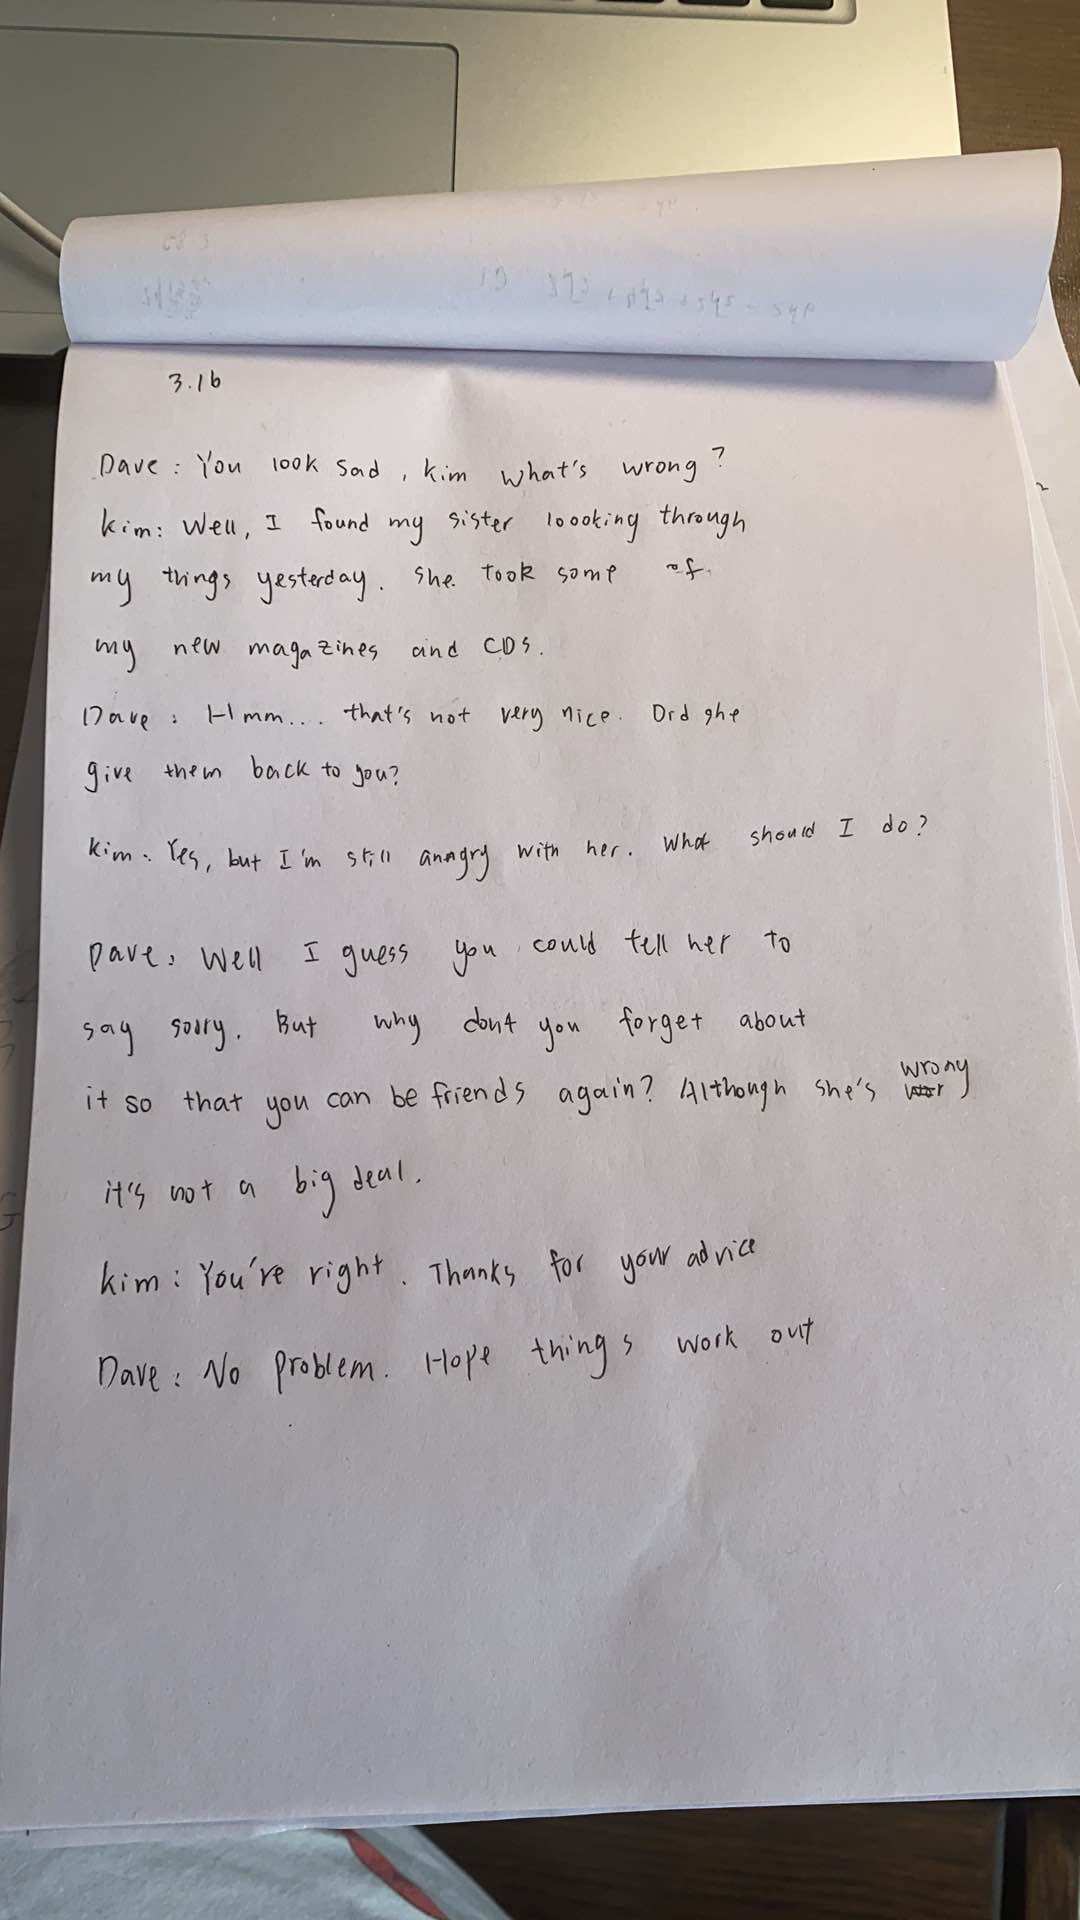 3.16
Dave : You look sad , kim what's wrong ?
kim : Well, I found my sister loooking through
my things yesterday. She took some of
my new magazines and CDs.
Dave : Hmm... that's not very nice. Did she
give them back to you?
kim : Yes, but I'm still anagry with her. What should I do?
Dave : Well I guess you could tell her to
say sorry. But why don't you forget about
it so that you can be friends again? Although she's wrong
it's not a big deal.
kim : You're right. Thanks for your advice
Dave : No problem. Hope things work out